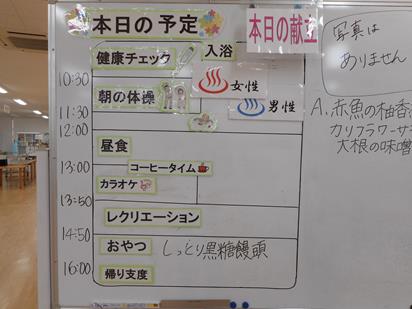 本日の予定
本日の献立
健康チェック
入浴
10:30
女性
朝の体操
男性
11:30
12:00
昼食
13:00
コーヒータイム
カラオケ
13:50
レクリエーション
14:50
おやつ しっとり黒糖饅頭
16:00
帰り支度
写真は
ありません
A.赤魚の柚香
カリフラワーサ
大根の味噌